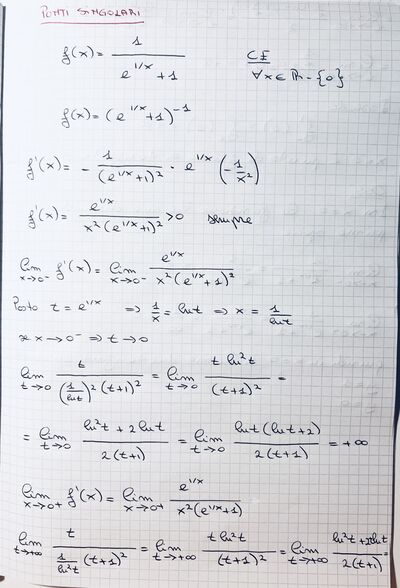 PUNTI SINGOLARI
f(x) = 1 / (e^{1/x} + 1)   CE
∀x ∈ ℝ - {0}
f(x) = (e^{1/x} + 1)^{-1}
f'(x) = - 1 / (e^{1/x} + 1)^2 · e^{1/x} (- 1/x^2)
f'(x) = e^{1/x} / (x^2 (e^{1/x} + 1)^2) > 0   sempre
lim_{x→0^-} f'(x) = lim_{x→0^-} e^{1/x} / (x^2 (e^{1/x} + 1)^2)
Posto t = e^{1/x} ⇒ 1/x = ln t ⇒ x = 1/ln t
x → 0^- ⇒ t → 0
lim_{t→0} t / ((1/ln t)^2 (t+1)^2) = lim_{t→0} t ln^2 t / (t+1)^2 =
= lim_{t→0} (ln^2 t + 2 ln t) / (2(t+1)) = lim_{t→0} ln t (ln t + 2) / (2(t+1)) = +∞
lim_{x→0+} f'(x) = lim_{x→0+} e^{1/x} / (x^2 (e^{1/x} + 1)
lim_{t→+∞} t / (1/ln^2 t (t+1)^2) = lim_{t→+∞} t ln^2 t / (t+1)^2 = lim_{t→+∞} (ln^2 t + 2 ln t) / (2(t+1)) =